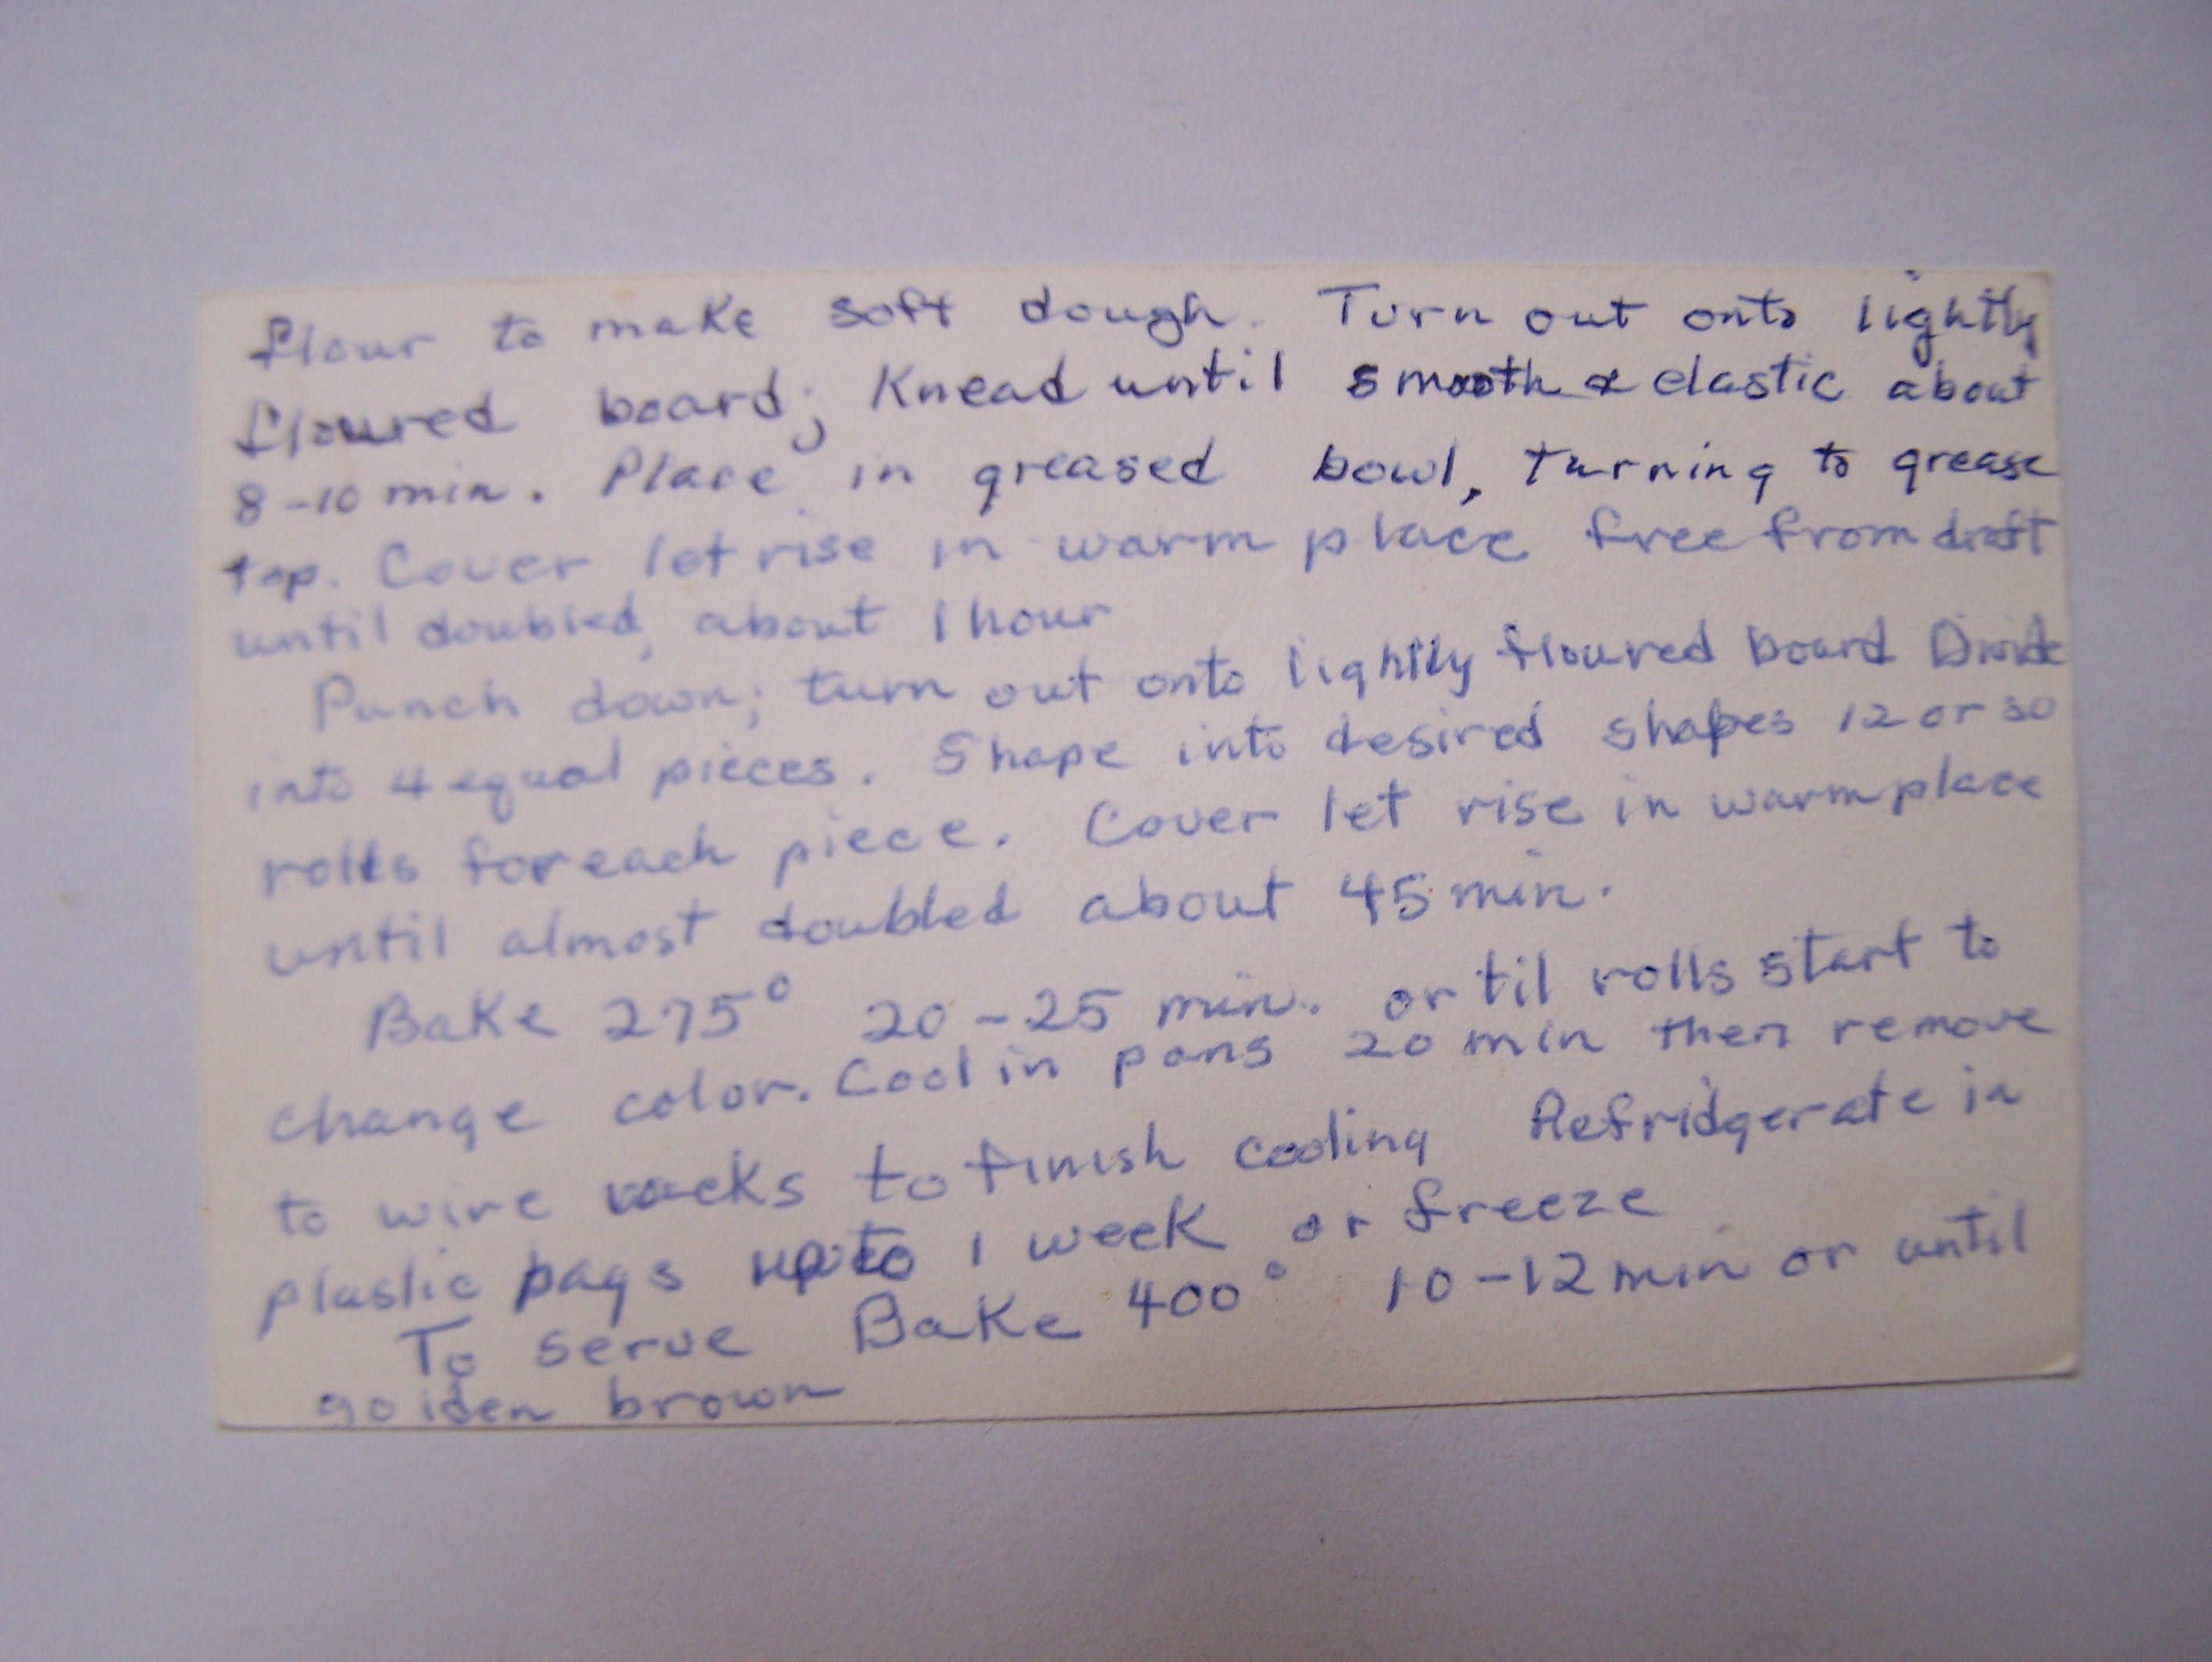 flour to make soft dough. Turn out onto lightly
floured board; Knead until smooth & elastic about
8-10 min. Place in greased bowl, turning to grease
top. Cover let rise in warm place free from draft
until doubled, about 1 hour
Punch down; turn out onto lightly floured board Divide
into 4 equal pieces. Shape into desired shapes 12 or so
rolls for each piece. Cover let rise in warm place
until almost doubled about 45 min.
Bake 275° 20-25 min. or til rolls start to
change color. Cool in pans 20 min then remove
to wire racks to finish cooling Refridgerate in
plastic bags upto 1 week or freeze
To serve Bake 400° 10-12 min or until
golden brown